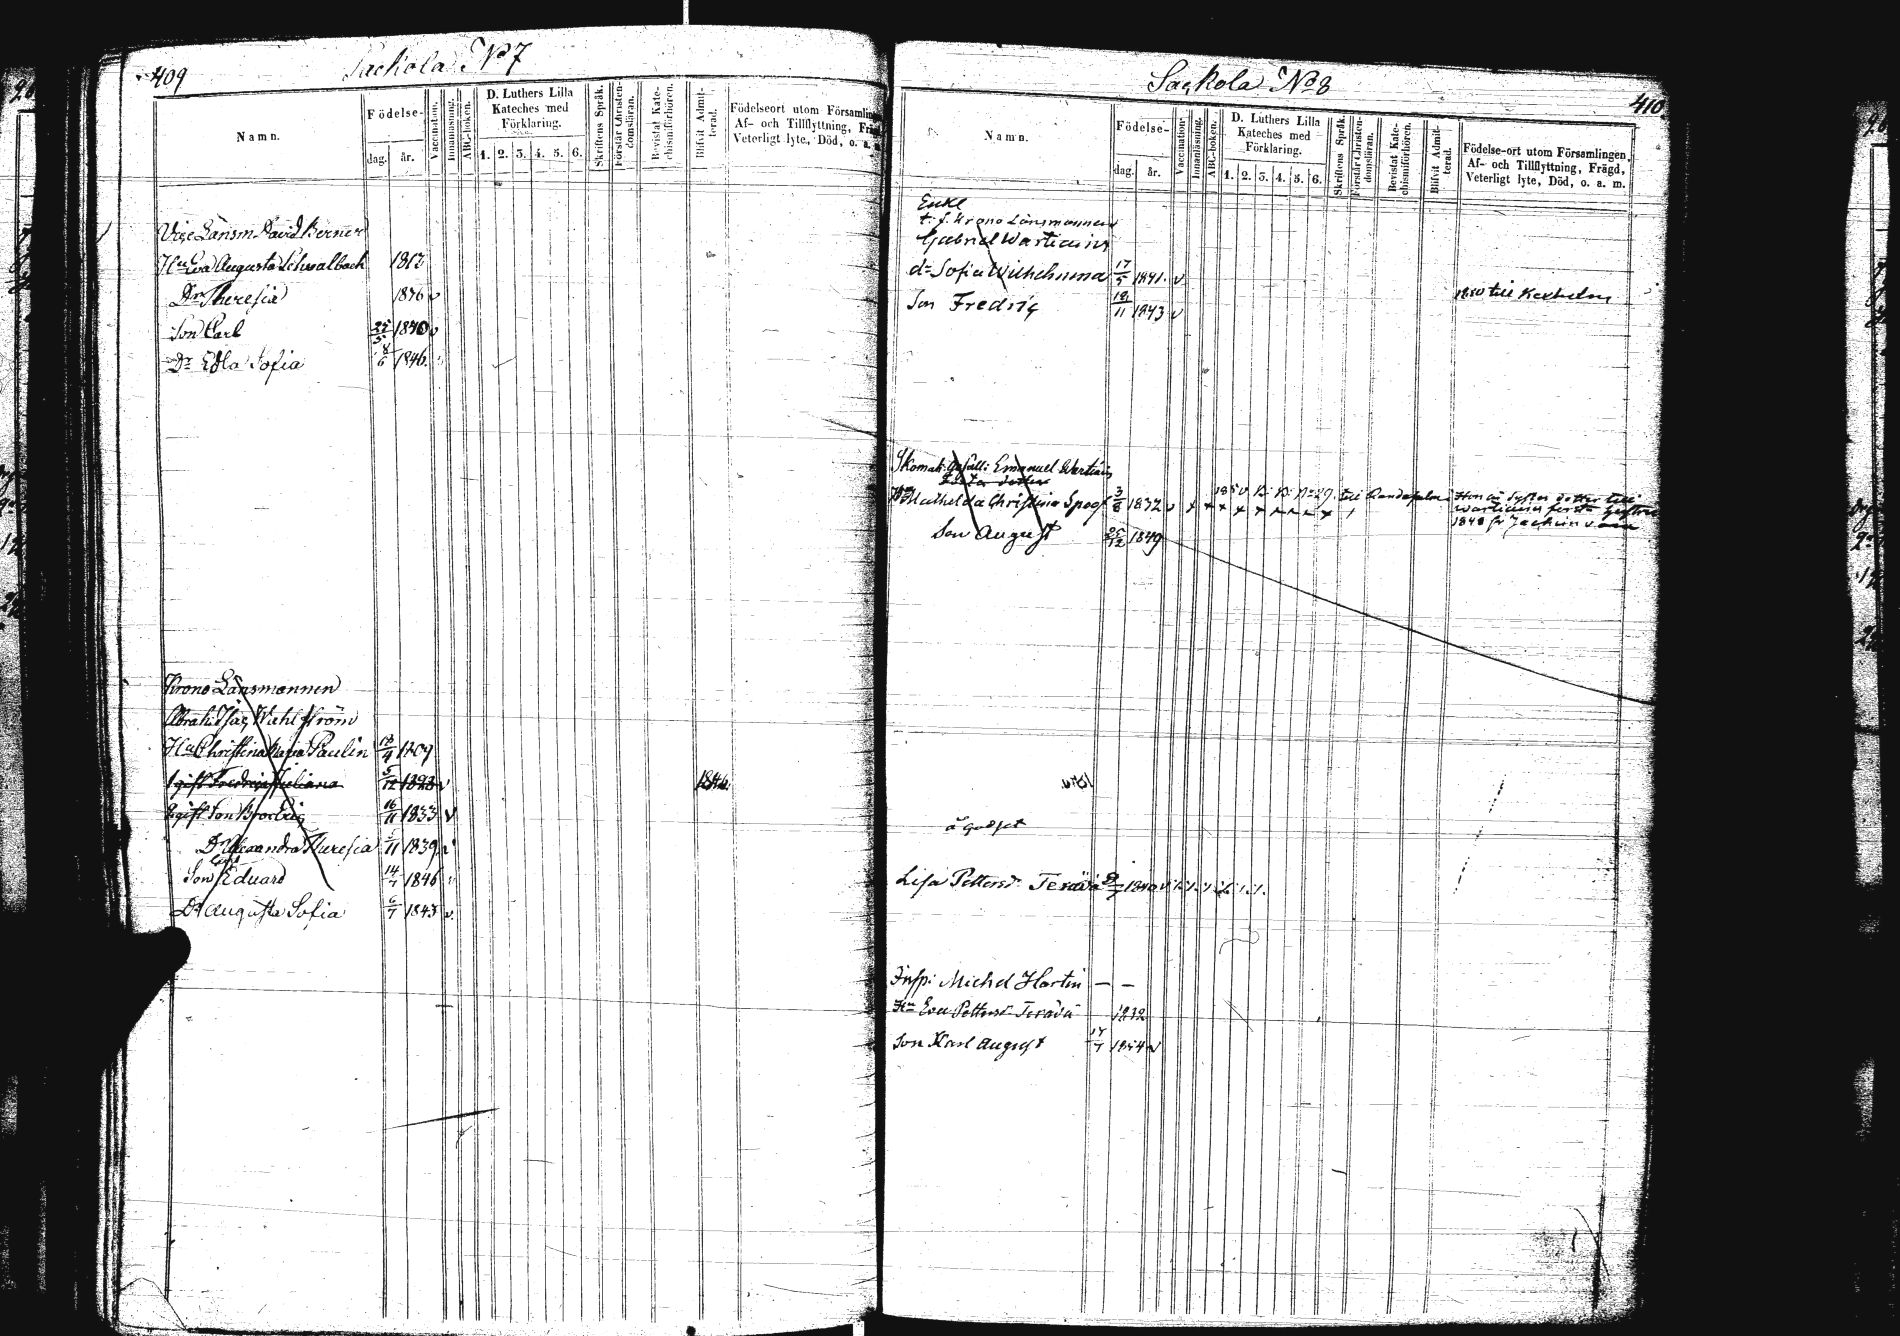 409
Sackola No 7
Namn.
Födelse-
dag.
år.
Vaccination.
Innanläsning.
ABC-boken.
D. Luthers Lilla
Kateches med
Förklaring.
1. 2. 3. 4. 5. 6.
Skriftens Språk.
Förstår Christen-
domsläran.
Bevistat Kate-
chismiförhören.
Blifvit Admit-
terad.
Födelseort utom Församlin
Af- och Tillflyttning,
Veterligt lyte, Död, o. a.
Vice Länsm. David Berner
Hu Eva Augusta Schwalbach 1813
Dr Theresia 1836 v
Son Carl 1840 v
Dr Edla Sofia 8/6 1846.
Krono Länsmannen
Abrah: Isac Wahlström
Hu Christina Maria Paulin 1709
1 gift Fredrica Juliana 5/12 1828 v 1846.
2 gift son 16/11 1833 v
Dr Alexandra Theresia /11 1839 v
Son Eduard 14/7 1846
Dr Augusta Sofia 6/7 1843 v.
Sackola No 8
410
Namn.
Födelse-
dag.
år.
Vaccination.
Innanläsning.
ABC-boken.
D. Luthers Lilla
Kateches med
Förklaring.
1. 2. 3. 4. 5. 6.
Skriftens Språk.
Förstår Christen-
domsläran.
Bevistat Kate-
chismiförhören.
Blifvit Admit-
terad.
Födelse-ort utom Församlingen,
Af- och Tillflyttning, Frägd,
Veterligt lyte, Död, o. a. m.
Enkl
t. f. Krono Länsmannen
Gabriel Wartiainen
dr Sofia Wilhelmina 17/5 1841. v
Son Fredric 18/11 1843 v 1850 till Kexholm
Skomak: Gesäll: Emanuel Wartiain
Hu Mathelda Christina Spoof 3/8 1832 v 1850 B: B: No 29. till Hon är syster dotter till
Wartiains första hustru
1848 fr Jackim
Son August 25/12 1849
å godset
Lisa Pettersdr Terävä 1840 v
Insp: Michel Hartin — —
Hu Eva Pettersdr Terävä 1832
Son Karl August 17/7 1854 v